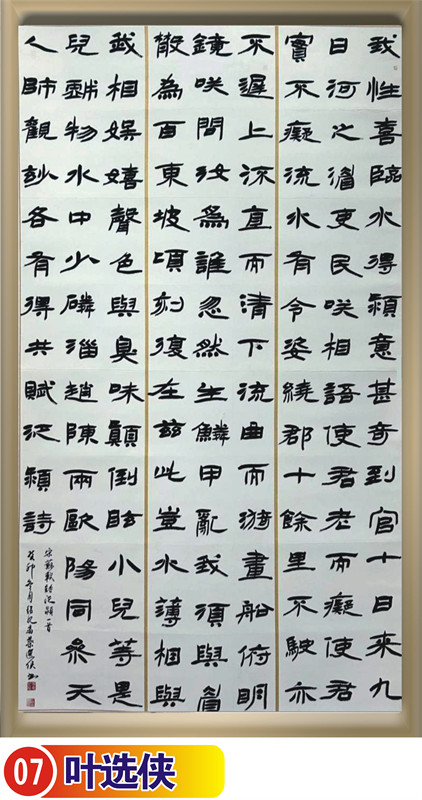 我性喜臨水得潁意甚奇到官十日來九
日河之湄吏民咲相語使君老而癡使君
實不癡流水有令姿繞郡十餘里不駛亦
不遲上流直而清下流曲而漪畫船俯明
鏡咲問汝為誰忽然生鱗甲亂我須與眉
散為百東坡頃刻復在茲此豈水薄相與
我相娛嬉聲色與臭味顛倒眩小兒等是
兒戲物水中少磷淄趙陳兩歐陽同參天
人師觀妙各有得共賦泛潁詩
宋蘇軾詩泛潁一首
癸卯 葉選俠書
07 叶选侠